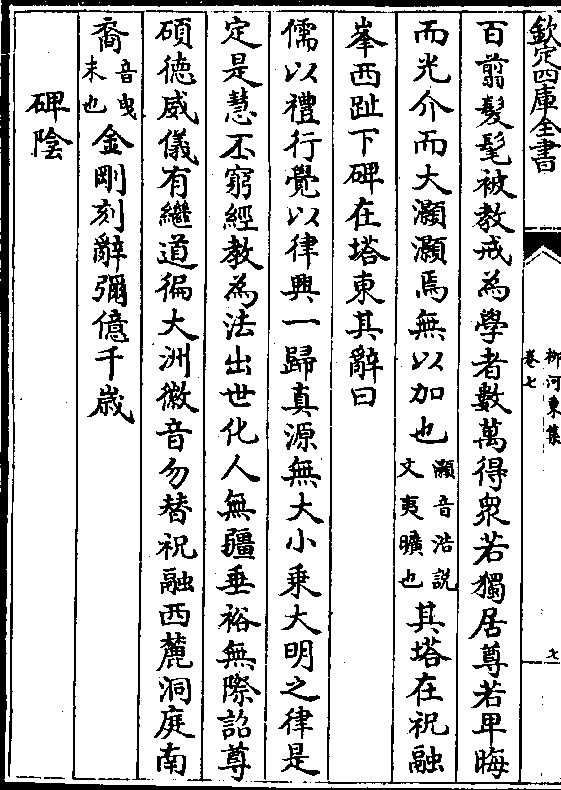 欽定四庫全書
柳河東集
卷七
七
百翦髮髦被教戒為學者數萬得衆若獨居尊若卑晦
而光介而大灝灝焉無以加也灝音浩説文夷曠也其塔在祝融
峯西趾下碑在塔東其辭曰
儒以禮行覺以律興一歸真源無大小乗大明之律是
定是慧丕窮經教為法出世化人無疆垂裕無際詔尊
碩德威儀有繼道徧大洲徽音勿替祝融西麓洞庭南
裔音曳末也金剛刻辭彌億千歳
碑陰